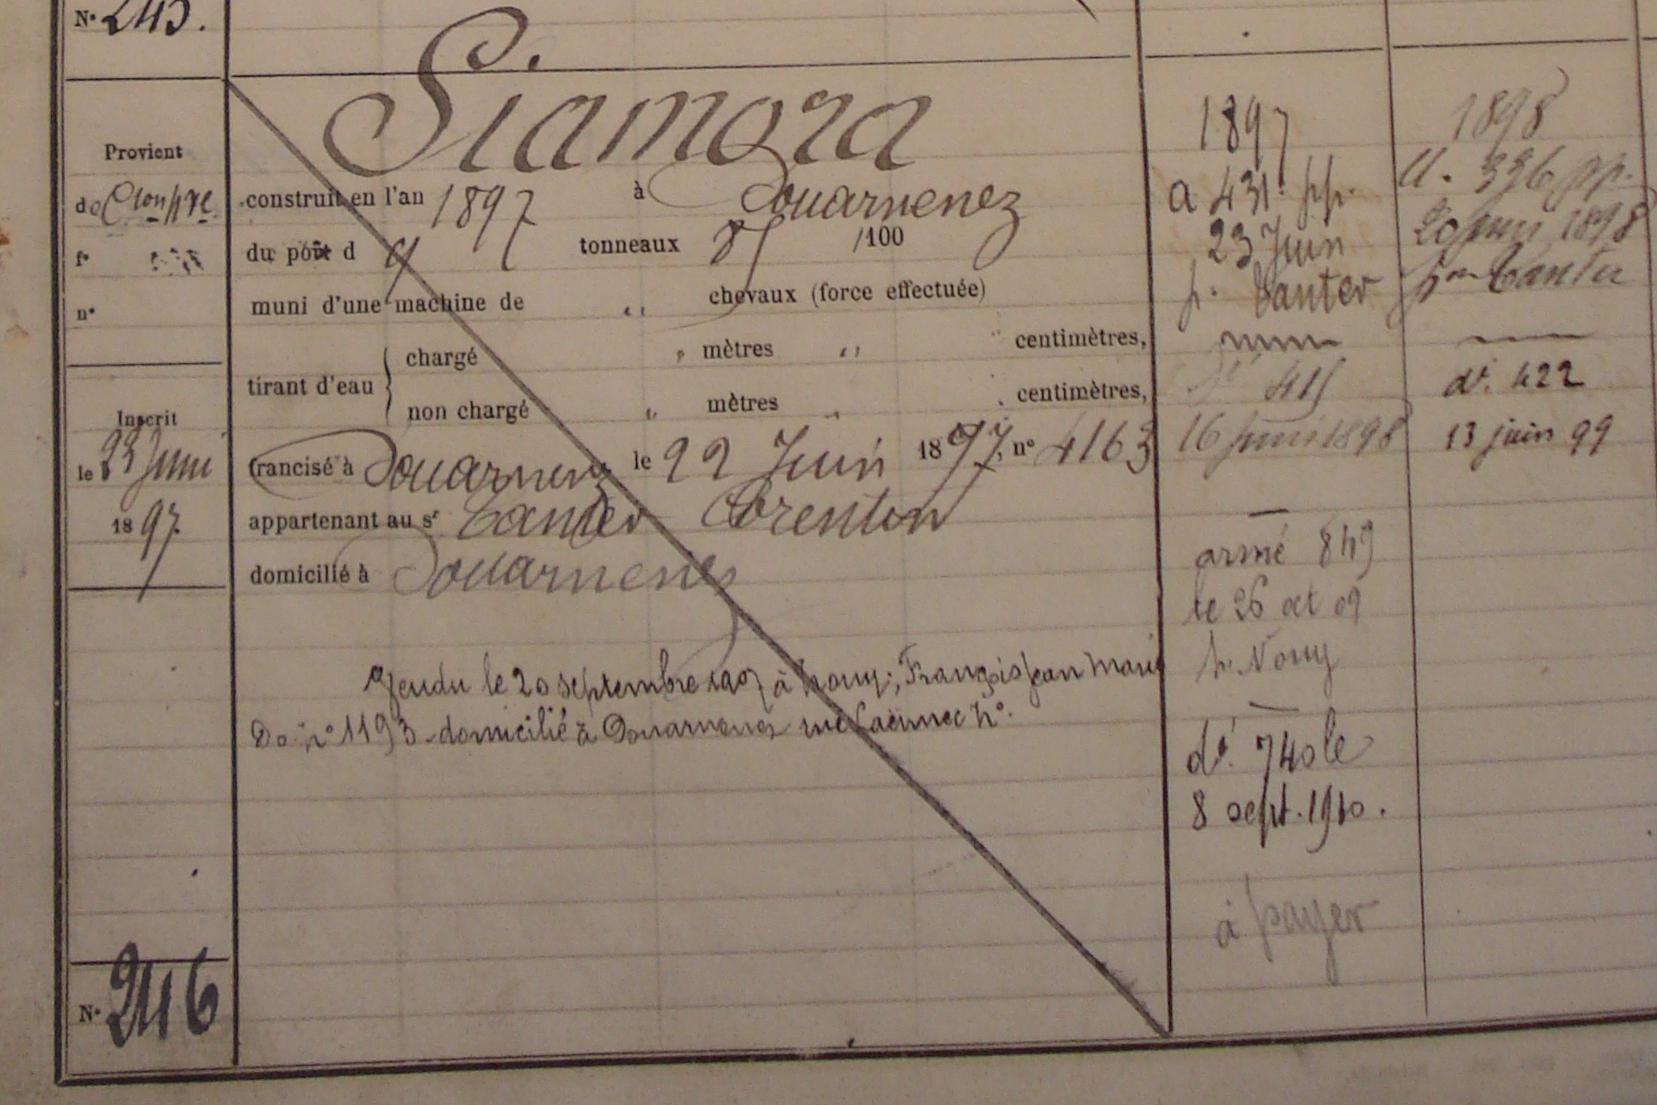 N° 245.
Siamora
Provient
de
f°
n°
construit en l'an 1897 à Douarnenez
du port d 9 tonneaux 85 /100
muni d'une machine de " chevaux (force effectuée)
tirant d'eau
chargé " mètres " centimètres,
non chargé " mètres " centimètres,
Inscrit
le 23 Juin
1897
francisé à Douarnenez le 22 Juin 1897, n° 4163
appartenant au sr Corentin
domicilié à Douarnenez
Vendu le 20 septembre 1907 à Nouy, François Jean Marie
Dz n° 1193 domicilié à Douarnenez rue Laennec n°.
N° 246
1897
a 431. pp.
23 Juin
p.
415
16 juin 1898
armé 849
le 26 oct 09
p. Nouy
dt. 740 le
8 sept. 1910.
à payer
1898
a. 396 pp.
20 juin 1898
dt. 422
13 juin 99